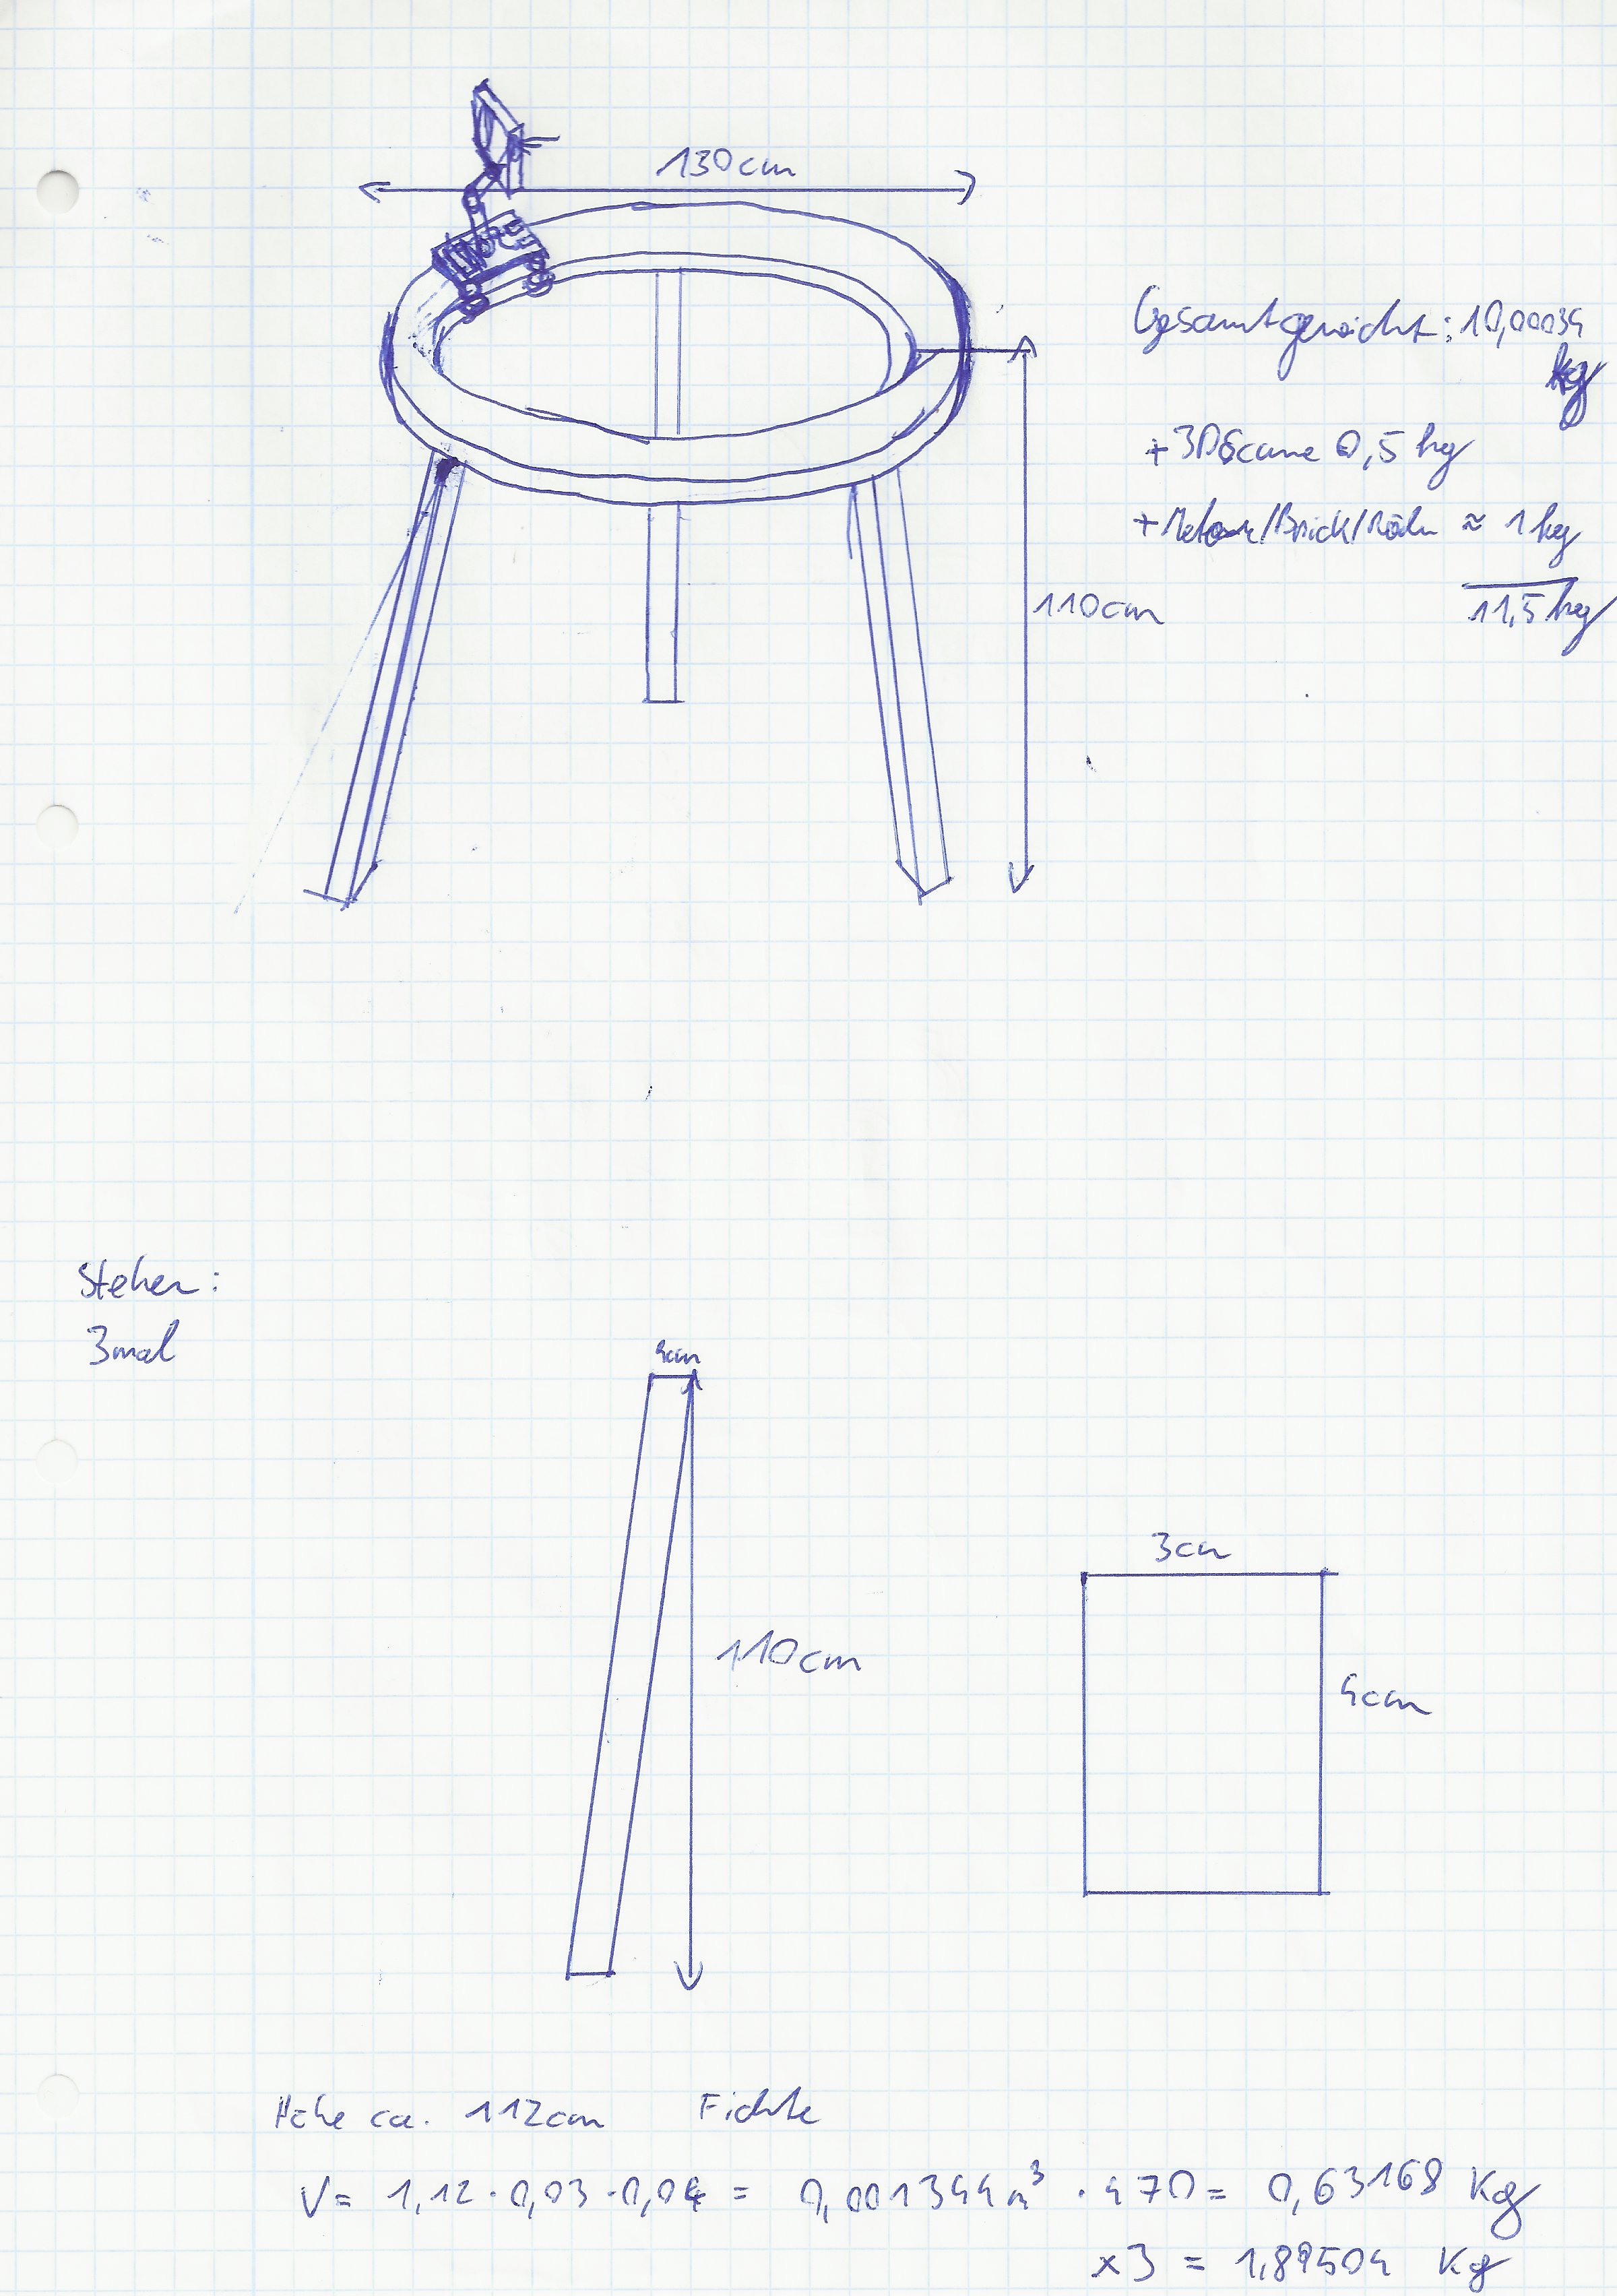 130cm
Gesamtgewicht: 10,00034
kg
+3DScanne 0,5 kg
+Motore/Brick/Räder ≈ 1 kg
11,5 kg
110cm
Steher:
3mal
4cm
110cm
3cm
4cm
Höhe ca. 112cm Fichte
V= 1,12·0,03·0,04 = 0,001344m³ · 470= 0,63168 Kg
x3 = 1,89504 Kg